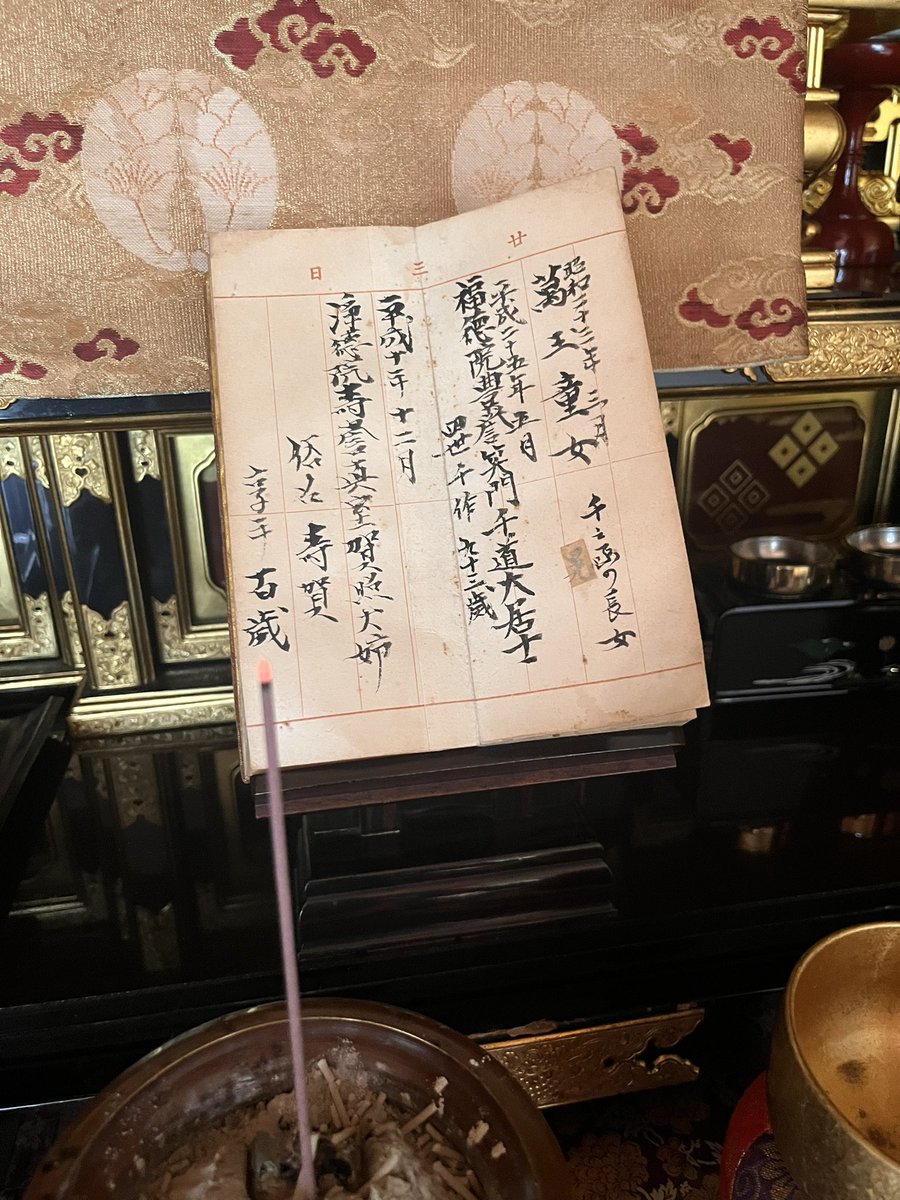 廿三日
昭和二十二年 三月
童女
千之丞の長女
平成二十五年五月
福徳院 笑門千道大居士
四世 千作 九十三歳
平成十年十二月
浄徳院 真室賀照大姉
俗名 寿賀
享年 百歳